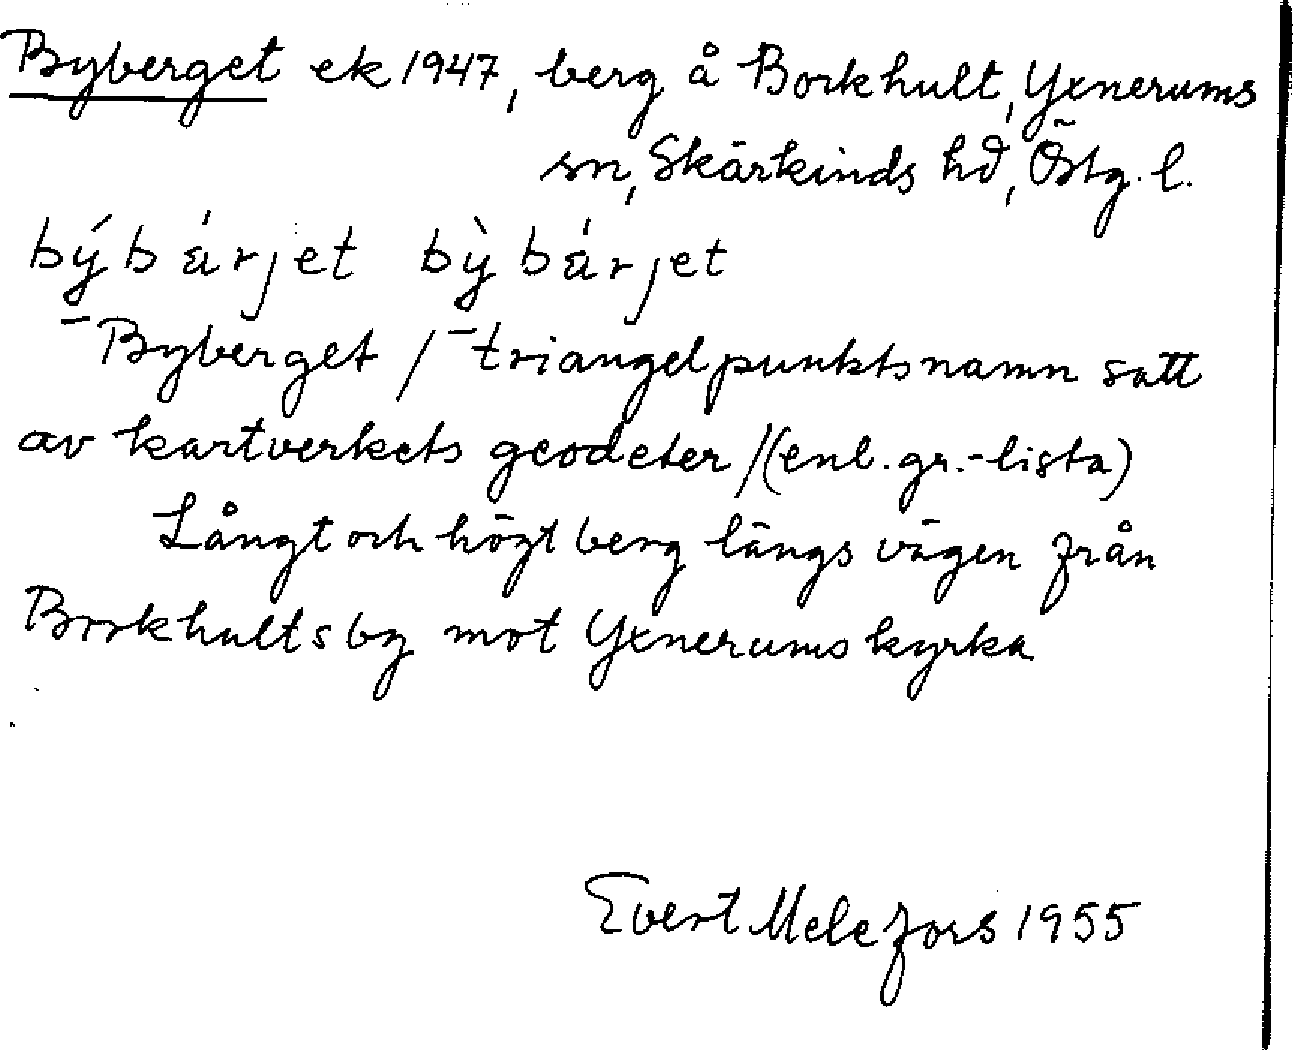 Byberget ek 1947, berg å Borkhult, Yxnerums
sn, Skärkinds hd, Östg. l.
býbá̈rjet bỳbá̈rjet
– Byberget / – triangelpunktsnamn satt
av kartverkets geodeter / (enl. gr.-lista)
Långt och högt berg längs vägen från
Borkhults by mot Yxnerums kyrka
Evert Melefors 1955